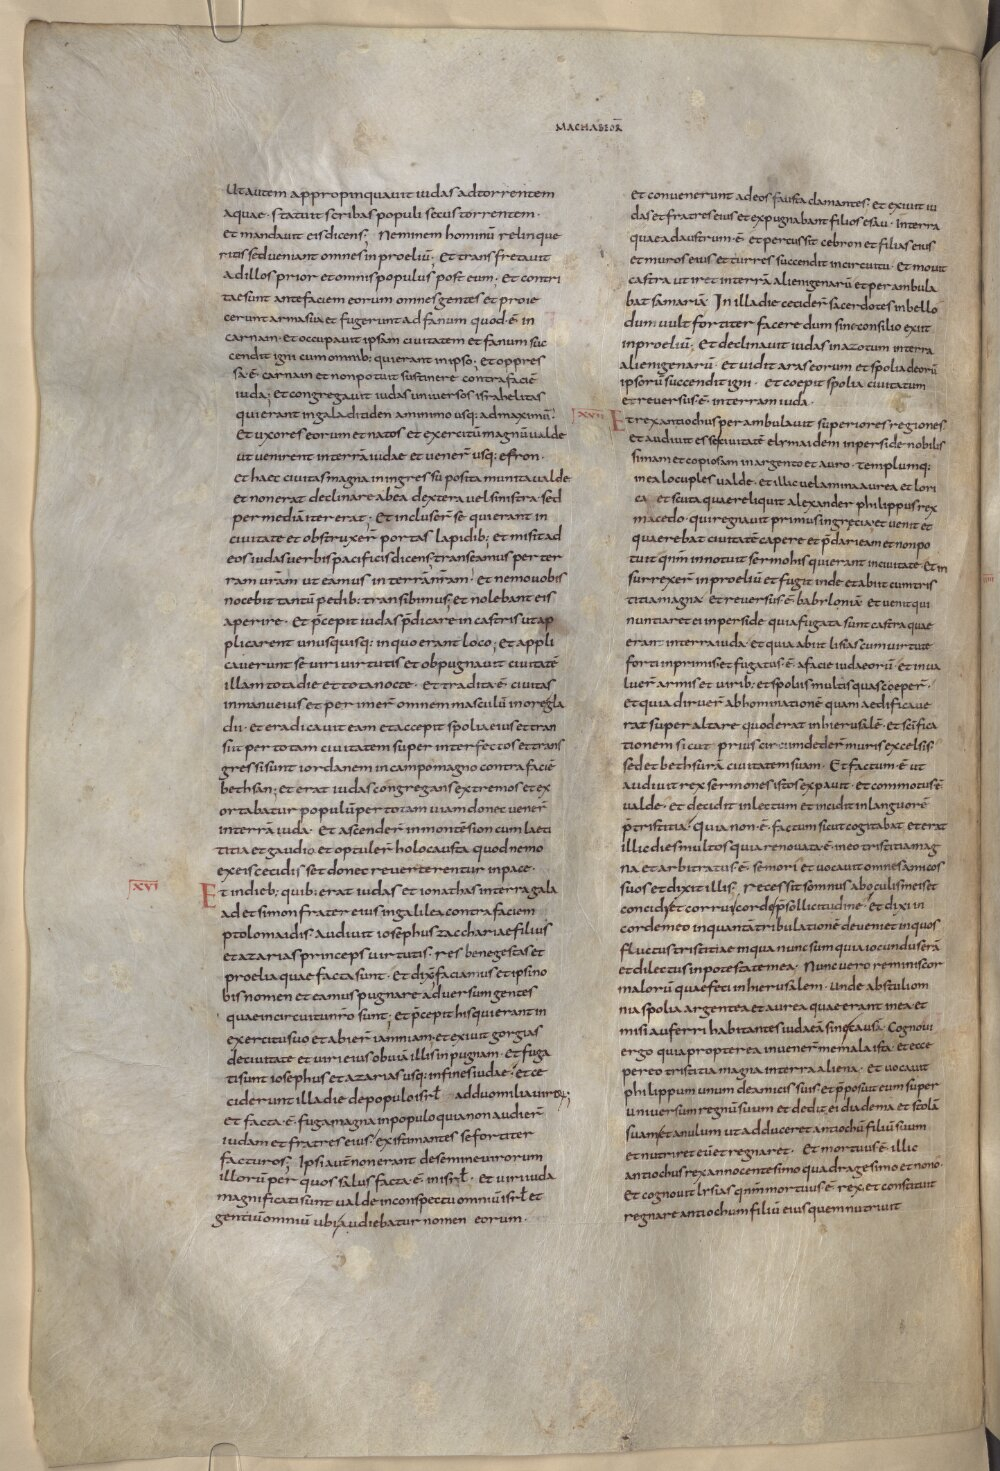 MACHABEOR̄
Ut autem appropinquavit iudas ad torrentem
aquae· statuit scribas populi secus torrentem·
et mandavit eis dicens; Neminem hominū relinque
ritis sed veniant omnes in proeliū· Et transfretavit
ad illos prior et omnis populus post eum· Et contri
tae sunt ante faciem eorum omnes gentes et proie
cerunt arma sua et fugerunt ad fanum quod·ē· in
carnain· et occupavit ipsam civitatem et fanum suc
cendit igni cum omnib; qui erant in ipso; et oppres
sa·ē· carnain et non potuit sustinere contra faciē
iuda; et congregavit iudas universos israhelitas
qui erant in galaditiden a minimo usq; ad maximū·
Et uxores eorum et natos et exercitū magnū valde
ut venirent in terrā iudae et vener̄ usq; efron·
et haec civitas magna in ingressu posita munita valde
et non erat declinare ab ea dextera vel sinistra· sed
per mediā iter erat· Et incluser̄ se qui erant in
civitate et obstruxer̄ portas lapidib; et misit ad
eos iudas verbis pacificis dicens; transeamus per ter
ram vr̄am ut eamus in terrā nr̄am· et nemo vobis
nocebit tantū pedib; transibimus; et nolebant eis
aperire· Et p̄cepit iudas p̄dicare in castris ut ap
plicarent unusquisq; in quo erant loco; Et appli
caverunt se viri virtutis et obpugnavit civitatē
illam tota die et tota nocte· et tradita·ē· civitas
in manu eius et perimer̄ omnem masculū in ore gla
dii· et eradicavit eam et accepit spolia eius et tran
siit per totam civitatem super interfectos et trans
gressi sunt iordanem in campo magno contra faciē
bethsan; et erat iudas congregans extremos et ex
ortabatur populū per totam viam donec vener̄
in terrā iuda· Et ascender̄ in montē sion cum laeti
titia et gaudio et optuler̄ holocausta quod nemo
ex eis cecidis set donec reverterentur in pace·
XVI
Et in dieb; quib; erat iudas et ionathas in terra gala
ad et simon frater eius in galilea contra faciem
ptolomaidis· Audivit iosephus zacchariae filius
et azarias princeps virtutis· res bene gestas et
proelia quae facta sunt· Et dix̄ faciamus et ipsi no
bis nomen et eamus pugnare adversum gentes
quae in circuitu nr̄o sunt; et p̄cepit his qui erant in
exercitu suo et abier̄ iamniam· et exivit gorgias
de civitate et viri eius obviā illis in pugnam· Et fuga
ti sunt iosephus et azarias usq; in fines iudae· et ce
ciderunt illa die de populo isrł ad duo milia viroꝝ;
et facta·ē· fuga magna in populo quia non audier̄
iudam et fratres eius/ existimantes se fortiter
facturos; Ipsi aut̄ non erant de semine virorum
illorū per quos salus facta·ē· in isrł· Et viri iuda
magnificati sunt valde in conspectu omniū isrł et
gentiū omniū ubi audiebatur nomen eorum·
et convenerunt ad eos fausta clamantes· et exivit iu
das et fratres eius et expugnabant filios esau· in terra
quae ad austrum·ē· et percussit cebron et filias eius
et muros eius et turres succendit in circuitu· Et movit
castra ut iret in terrā alienigenarū et perambula
bat samariā· In illa die cecider̄ sacerdotes in bello
dum vult fortiter facere dum sine consilio exiit
in proeliū· Et declinavit iudas in azotum in terra
alienigenarū· et vidit aras eorum et spolia deorū
ipsorū succendit igni· et coepit spolia civitatum
et reversus·ē· in terram iuda·
XVII
Et rex antiochus perambulavit superiores regiones
et audivit esse civitatē elymaidem in perside nobilis
simam et copiosam in argento et auro· templumq;
in ea locuples valde· et illic velamina aurea et lori
ca et scuta quae reliquit alexander philippus rex
macedo· qui regnavit primus in grecia; et venit et
quaerebat civitatē capere et p̄dari eam et non po
tuit qm̄ innotuit sermo his qui erant in civitate· Et in
surrexer̄ in proeliū et fugit inde et abiit cum tris
titia magna· et reversus·ē· babyloniā· et venit qui
nuntiaret ei in perside· quia fugata sunt castra quae
erant in terra iuda· et quia abiit lisias cum virtute
forti in primis et fugatus·ē· a facie iudaeorū· et inva
luer̄ armis et virib; et spoliis multis quas coeper̄·
et quia diruer̄ abhominationē quam aedificave
rat super altare quod erat in hierusalē· et sc̄ifica
tionem sicut prius circumdeder̄ muris excelsis·
sed et bethsurā civitatem suam· Et factum·ē· ut
audivit rex sermones istos expavit· et commotus·ē
valde· et decidit in lectum et incidit in languorē
p̄ tristitia· Quia non·ē· factum sicut cogitabat et erat
illic dies multos quia renovata·ē· in eo tristitia mag
na et arbitratus·ē· se mori et vocavit omnes amicos
suos et dixit illis; recessit somnus ab oculis meis et
concidi et corrui corde p̄ sollicitudine· et dixi in
corde meo in quantā tribulationē deveni et in quos
fluctus tristitiae in qua nunc sum qui a iocundus erā
et dilectus in potestate mea· Nunc vero reminiscor
malorū quae feci in hierusalem· unde abstuli om
nia spolia argentea et aurea quae erant in ea et
misi auferri habitantes iudaeā sine causa· Cognovi
ergo quia propterea invener̄ me mala ista· et ecce
pereo tristitia magna in terra aliena· et vocavit
philippum unum de amicis suis et p̄posuit eum super
universum regnū suum et dedit ei diadema et stolā
suam et anulum ut adduceret antiochū filiū suum
et nutriret eū et regnaret· Et mortuus·ē· illic
antiochus rex anno centesimo quadragesimo et nono·
et cognovit lysias qm̄ mortuus·ē· rex· et constituit
regnare antiochum filiū eius quem nutrivit